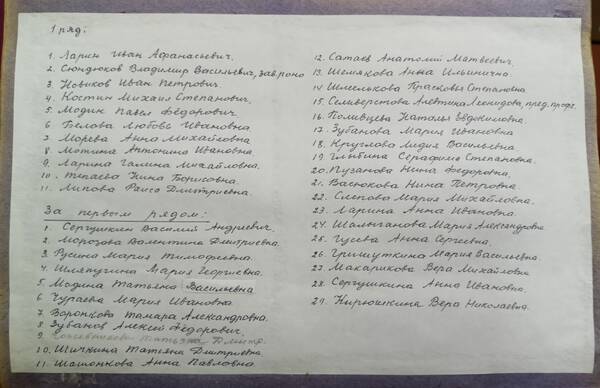 1 ряд:
1. Ларин Иван Афанасьевич.
2. Сюндюков Владимир Васильевич, зав роно
3. Новиков Иван Петрович.
4. Костин Михаил Степанович.
5. Модин Павел Фёдорович.
6 Белова Любовь Ивановна
7. Морева Анна Михайловна
8. Мотина Антонина Ивановна.
9. Ларина Галина Михайловна.
10. Нина Борисовна
11. Липова Раиса Дмитриевна.
За первым рядом:
1. Сергушкин Василий Андреевич.
2. Морозова Валентина Дмитриевна.
3. Русина Мария Тимофеевна.
4. Шляпугина Мария Георгиевна.
5. Модина Татьяна Васильевна
6 Чураева Мария Ивановна
7. Воронкова Тамара Александровна.
8 Зубанов Алексей Фёдорович.
9. Татьяна Дмитр.
10. Шичкина Татьяна Дмитриевна.
11. Шашонкова Анна Павловна.
12. Сатаев Анатолий Матвеевич.
13. Шемякова Анна Ильинична.
14 Шмелькова Прасковья Степановна
15. Селиверстова Алевтина Леонидовна, пред. профс.
16. Поливцева Наталья Евдокимовна.
17. Зубанова Мария Ивановна
18. Круглова Лидия Васильевна
19. Глыбина Серафима Степановна.
20. Пузанова Нина Федоровна.
21. Васюкова Нина Петровна.
22. Слепова Мария Михайловна.
23. Ларина Анна Ивановна.
24. Шалыганова Мария Александровна
25. Гусева Анна Сергеевна.
26. Гримуткина Мария Васильевна.
27. Макарикова Вера Михайловна
28. Сергушкина Анна Ивановна.
29. Кирюшкина Вера Николаевна.